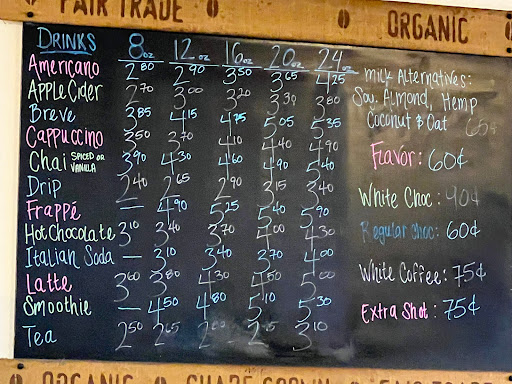 FAIR TRADE
ORGANIC
DRINKS 8 oz 12 oz 16 oz 20 oz 24 oz
Americano 2.80 2.90 3.50 3.65 4.25
Apple Cider 2.70 3.00 3.20 3.30 3.80
Breve 3.85 4.15 4.75 5.05 5.35
Cappuccino 3.50 3.70 4.10 4.40 4.90
Chai SPICED OR VANILLA 3.90 4.30 4.60 4.90 5.40
Drip 2.40 2.65 2.90 3.15 3.40
Frappé — 4.90 5.25 5.40 5.90
Hot Chocolate 3.10 3.40 3.70 4.00 4.30
Italian Soda — 3.10 3.40 3.70 4.00
Latte 3.60 3.80 4.30 4.50 5.00
Smoothie — 4.50 4.80 5.10 5.30
Tea 2.50 2.65 3.10
Milk Alternatives:
Soy, Almond, Hemp
Coconut & Oat 65¢
Flavor: 60¢
White Choc: 90¢
Regular Choc: 60¢
White Coffee: 75¢
Extra Shot: 75¢
ORGANIC
SHADE GROWN